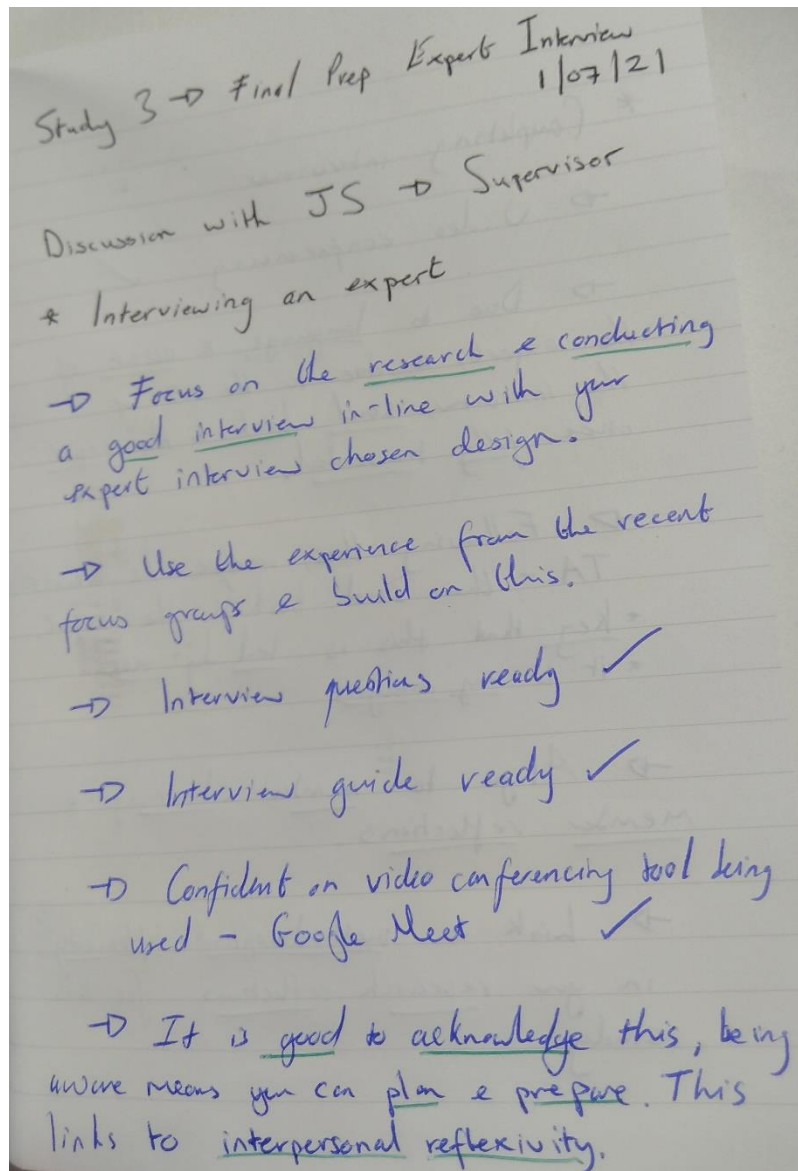 Study 3 → Final Prep Expert Interview
1/07/21
Discussion with JS → Supervisor
* Interviewing an expert
→ Focus on the research & conducting
a good interview in-line with your
expert interview chosen design.
→ Use the experience from the recent
focus groups & build on this.
→ Interview questions ready ✓
→ Interview guide ready ✓
→ Confident on video conferencing tool being
used - Google Meet ✓
→ It is good to acknowledge this, being
aware means you can plan & prepare. This
links to interpersonal reflexivity.